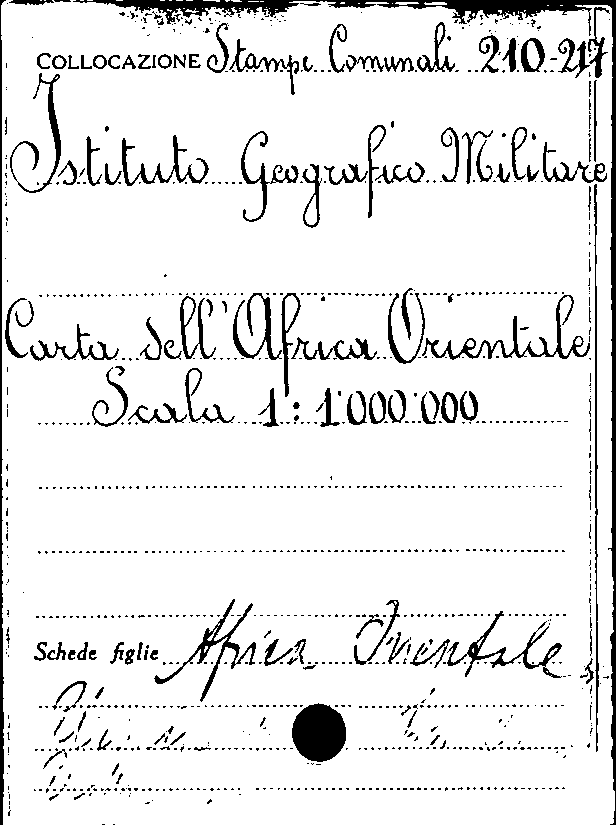 COLLOCAZIONE Stampe Comunali 210-217
Istituto Geografico Militare
Carta dell'Africa Orientale
Scala 1:1'000'000
Schede figlie Africa Orientale